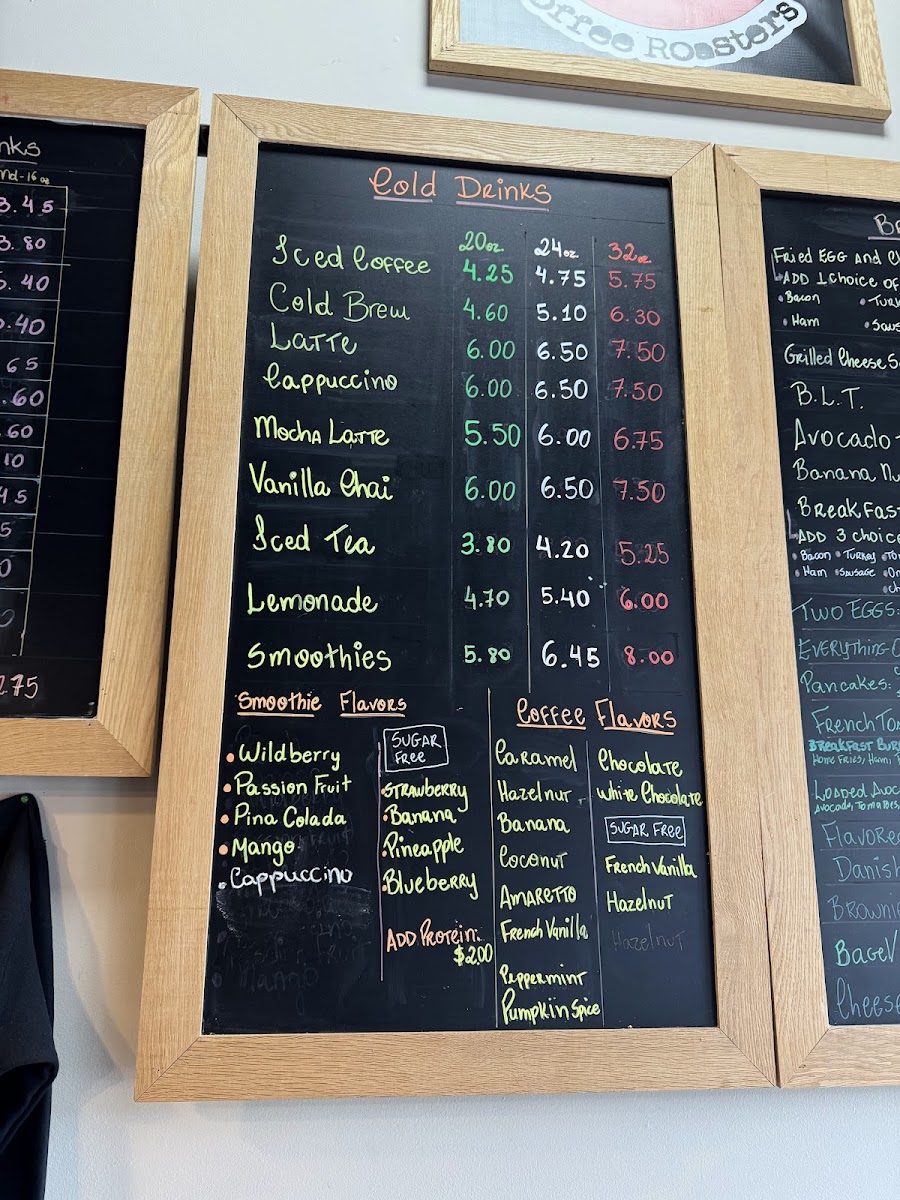 Coffee Roasters
Cold Drinks
20oz 24oz 32oz
Iced Coffee 4.25 4.75 5.75
Cold Brew 4.60 5.10 6.30
Latte 6.00 6.50 7.50
Cappuccino 6.00 6.50 7.50
Mocha Latte 5.50 6.00 6.75
Vanilla Chai 6.00 6.50 7.50
Iced Tea 3.80 4.20 5.25
Lemonade 4.70 5.40 6.00
Smoothies 5.80 6.45 8.00
Smoothie Flavors
• Wildberry
• Passion Fruit
• Pina Colada
• Mango
• Cappuccino
SUGAR
FREE
• Strawberry
• Banana
• Pineapple
• Blueberry
ADD Protein:
$2.00
Coffee Flavors
Caramel
Hazelnut
Banana
Coconut
Amaretto
French Vanilla
Peppermint
Pumpkin Spice
Chocolate
White Chocolate
SUGAR FREE
French Vanilla
Hazelnut
Hazelnut
3.45
3.80
5.40
.40
65
.60
.60
10
45
5
0
275
Fried Egg and
ADD 1 choice of
• Bacon
• Ham
Grilled Cheese
B.L.T.
Avocado
Banana
Breakfast
ADD 3 choice
• Bacon • Turkey
• Ham • Sausage
Two Eggs:
Everything
Pancakes:
French
Breakfast
Home Fries, Ham,
Loaded
Avocado, Tomatoes,
Flavored
Danish
Brownie
Bagel
Cheese